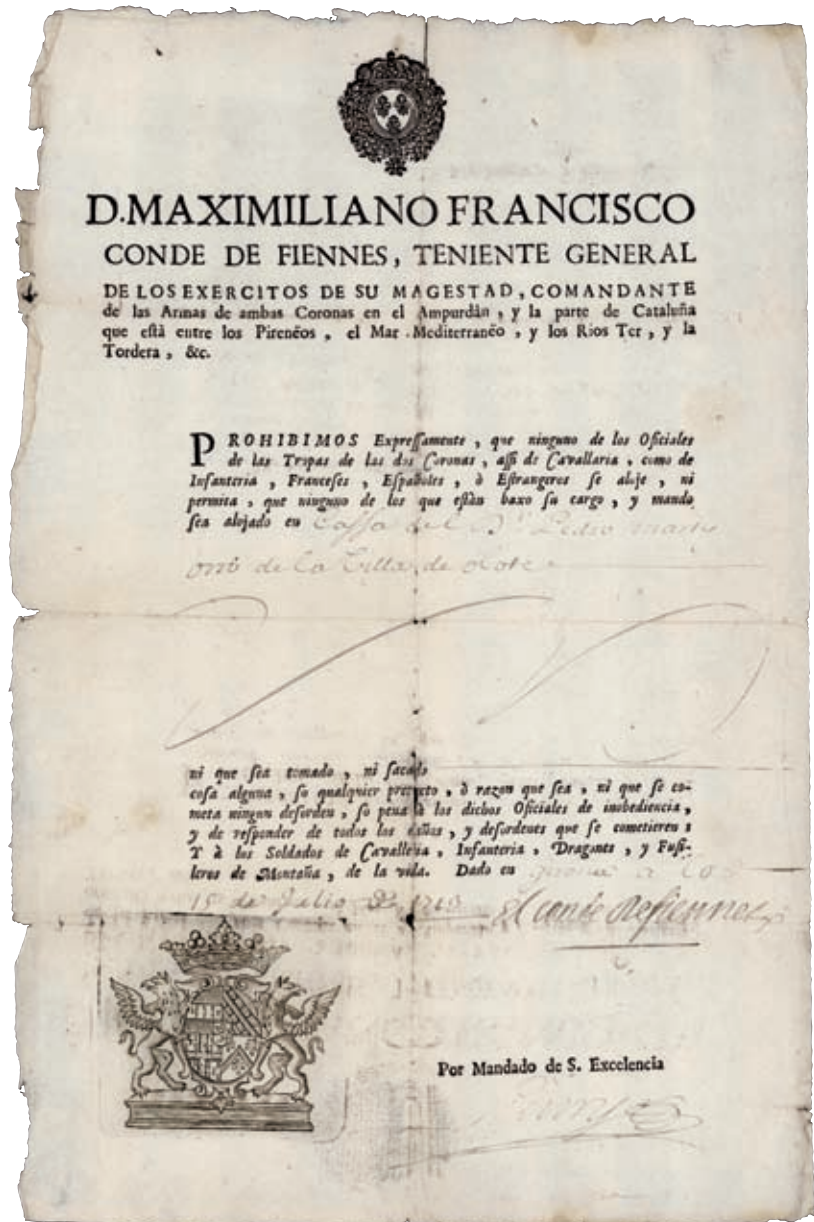 D. MAXIMILIANO FRANCISCO
CONDE DE FIENNES, TENIENTE GENERAL
DE LOS EXERCITOS DE SU MAGESTAD, COMANDANTE
de las Armas de ambas Coronas en el Ampurdàn, y la parte de Cataluña
que eſtà entre los Pirenèos, el Mar Mediterranèo, y los Rios Ter, y la
Tordera, &c.
PROHIBIMOS Expreſſamente, que ninguno de los Oficiales
de las Tropas de las dos Coronas, aſſi de Cavallaria, como de
Infanteria, Franceſes, Eſpañoles, ò Eſtrangeros ſe aloje, ni
permita, que ninguno de los que eſtàn baxo ſu cargo, y mando
ſea alojado en Caſſa del Dr Pedro
de la Villa de
ni que ſea tomado, ni ſacado
coſa alguna, ſo qualquier pretexto, ò razon que ſea, ni que ſe co-
meta ningun deſorden, ſo pena à los dichos Oficiales de inobediencia,
y de reſponder de todos los daños, y deſordenes que ſe cometieren:
Y à los Soldados de Cavalleria, Infanteria, Dragones, y Fuſi-
leros de Montaña, de la vida. Dado en
15 de Julio
El conde de fiennes
Por Mandado de S. Excelencia